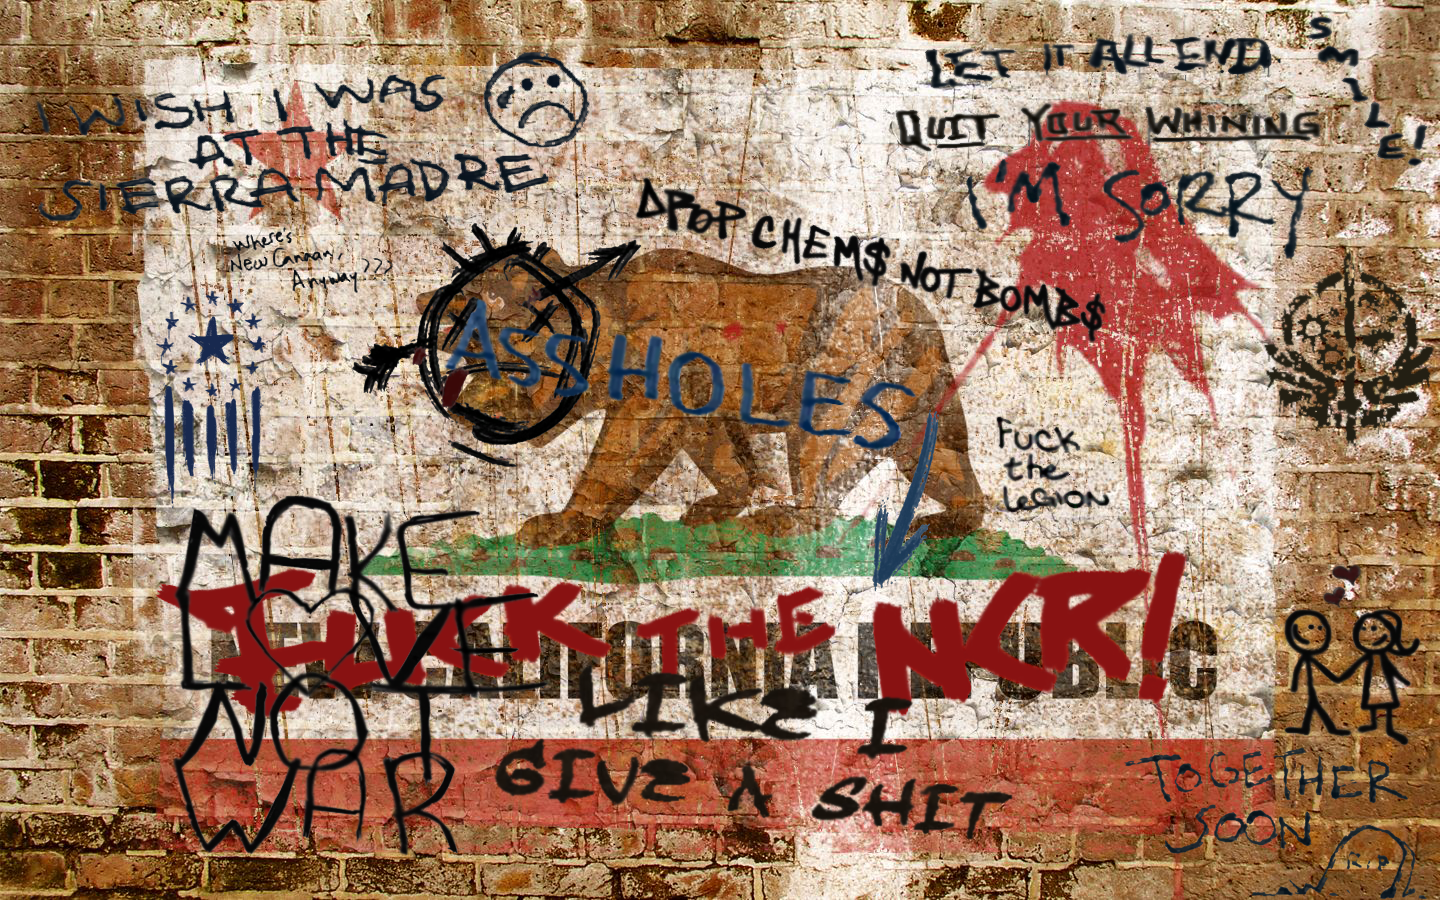 I WISH I WAS
AT THE
SIERRA MADRE
LET IT ALL END
SMILE!
QUIT YOUR WHINING
I'M SORRY
DROP CHEM$ NOT BOMB$
Where's
New Canaan,
Anyway???
ASSHOLES
Fuck
the
Legion
MAKE
LOVE
NOT
WAR
FUCK THE NCR!
NEW CALIFORNIA REPUBLIC
LIKE I
GIVE A SHIT
TOGETHER
SOON
R.I.P